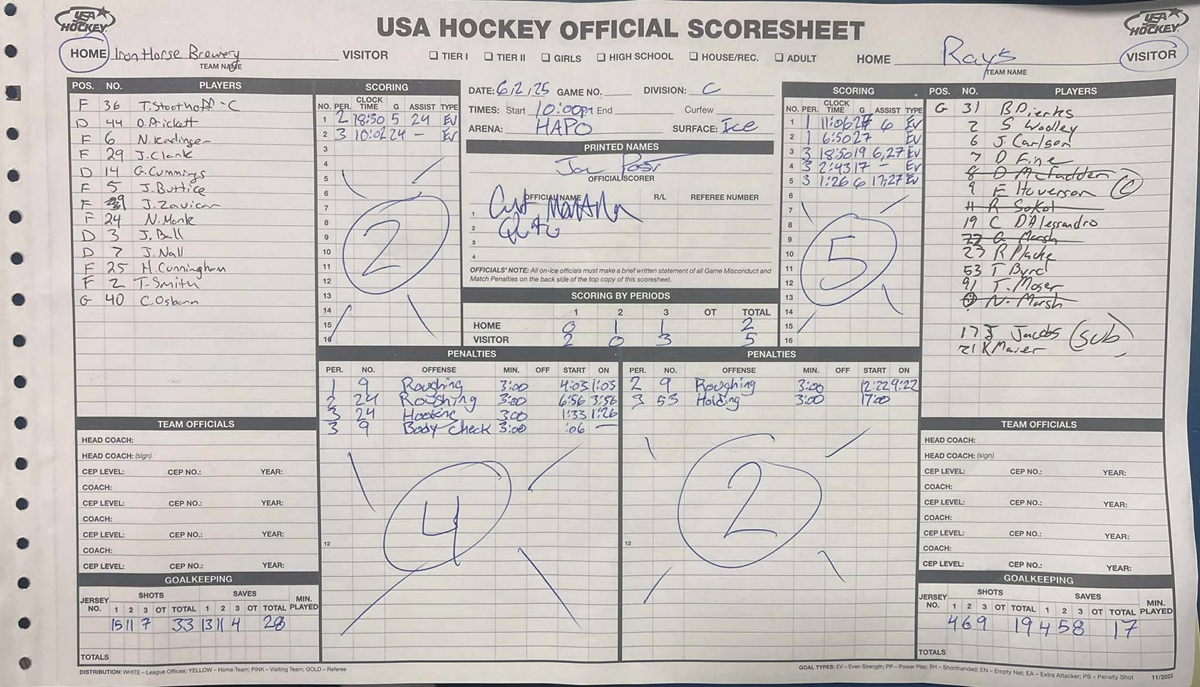 USA HOCKEY
USA HOCKEY OFFICIAL SCORESHEET
USA HOCKEY
HOME Iron Horse Brewery VISITOR ☐ TIER I ☐ TIER II ☐ GIRLS ☐ HIGH SCHOOL ☐ HOUSE/REC. ☐ ADULT HOME Rays VISITOR
TEAM NAME
TEAM NAME
POS. NO. PLAYERS
F 36 T. Stoothoff - C
D 44 D. Prickett
F 6 N. Kindinger
F 29 J. Clark
D 14 G. Cummings
F 5 J. Buttice
F J. Zavicar
F 24 N. Monk
D 3 J. Bull
D 7 J. Nall
F 25 H. Cunningham
F 2 T. Smith
G 40 C. Osborn
SCORING
NO. PER. CLOCK TIME G ASSIST TYPE
1 2 18:50 5 24 EV
2 3 10:02 24 - EV
3
4
5
6
7
8
9
10
11
12
13
14
15
16
2
DATE: 6/2/25 GAME NO. DIVISION: C
TIMES: Start 10:00pm End Curfew
ARENA: HAPO SURFACE: Ice
PRINTED NAMES
OFFICIAL SCORER
OFFICIAL NAME R/L REFEREE NUMBER
1
2
3
4
OFFICIALS' NOTE: All on-ice officials must make a brief written statement of all Game Misconduct and
Match Penalties on the back side of the top copy of this scoresheet.
SCORING BY PERIODS
1 2 3 OT TOTAL
HOME 0 1 1 2
VISITOR 2 0 3 5
SCORING
NO. PER. CLOCK TIME G ASSIST TYPE
1 1 11:06 27 6 EV
2 1 6:50 27 EV
3 3 18:50 19 6,27 EV
4 3 2:43 17 - EV
5 3 1:26 6 17,27 EV
6
7
8
9
10
11
12
13
14
15
16
5
POS. NO. PLAYERS
G 31 B. Dierks
2 S Woolley
6 J. Carlson
7 D Fine
8 D McFadden
9 E Hoverson C
11 R Sokol
19 C D'Alessandro
72 Marsh
23 R Plache
53 T Byrd
91 T. Moser
N. Marsh
17 J Jacobs (sub)
21 K Maier
PENALTIES
PER. NO. OFFENSE MIN. OFF START ON
1 9 Roughing 3:00 4:03 1:05
2 24 Roughing 3:00 6:56 3:56
3 24 Hooking 3:00 1:33 1:26
3 9 Body Check 3:00 :06 —
12
4
PENALTIES
PER. NO. OFFENSE MIN. OFF START ON
2 9 Roughing 3:00 12:22 9:22
3 53 Holding 3:00 17:00
12
2
TEAM OFFICIALS
HEAD COACH:
HEAD COACH: (sign)
CEP LEVEL: CEP NO.: YEAR:
COACH:
CEP LEVEL: CEP NO.: YEAR:
COACH:
CEP LEVEL: CEP NO.: YEAR:
COACH:
CEP LEVEL: CEP NO.: YEAR:
GOALKEEPING
JERSEY NO. SHOTS SAVES MIN. PLAYED
1 2 3 OT TOTAL 1 2 3 OT TOTAL
15 11 7 33 13 11 4 28
TOTALS
TEAM OFFICIALS
HEAD COACH:
HEAD COACH: (sign)
CEP LEVEL: CEP NO.: YEAR:
COACH:
CEP LEVEL: CEP NO.: YEAR:
COACH:
CEP LEVEL: CEP NO.: YEAR:
COACH:
CEP LEVEL: CEP NO.: YEAR:
GOALKEEPING
JERSEY NO. SHOTS SAVES MIN. PLAYED
1 2 3 OT TOTAL 1 2 3 OT TOTAL
4 6 9 19 4 5 8 17
TOTALS
DISTRIBUTION: WHITE – League Offices; YELLOW – Home Team; PINK – Visiting Team; GOLD – Referee
GOAL TYPES: EV – Even Strength; PP – Power Play; SH – Shorthanded; EN – Empty Net; EA – Extra Attacker; PS – Penalty Shot 11/2022